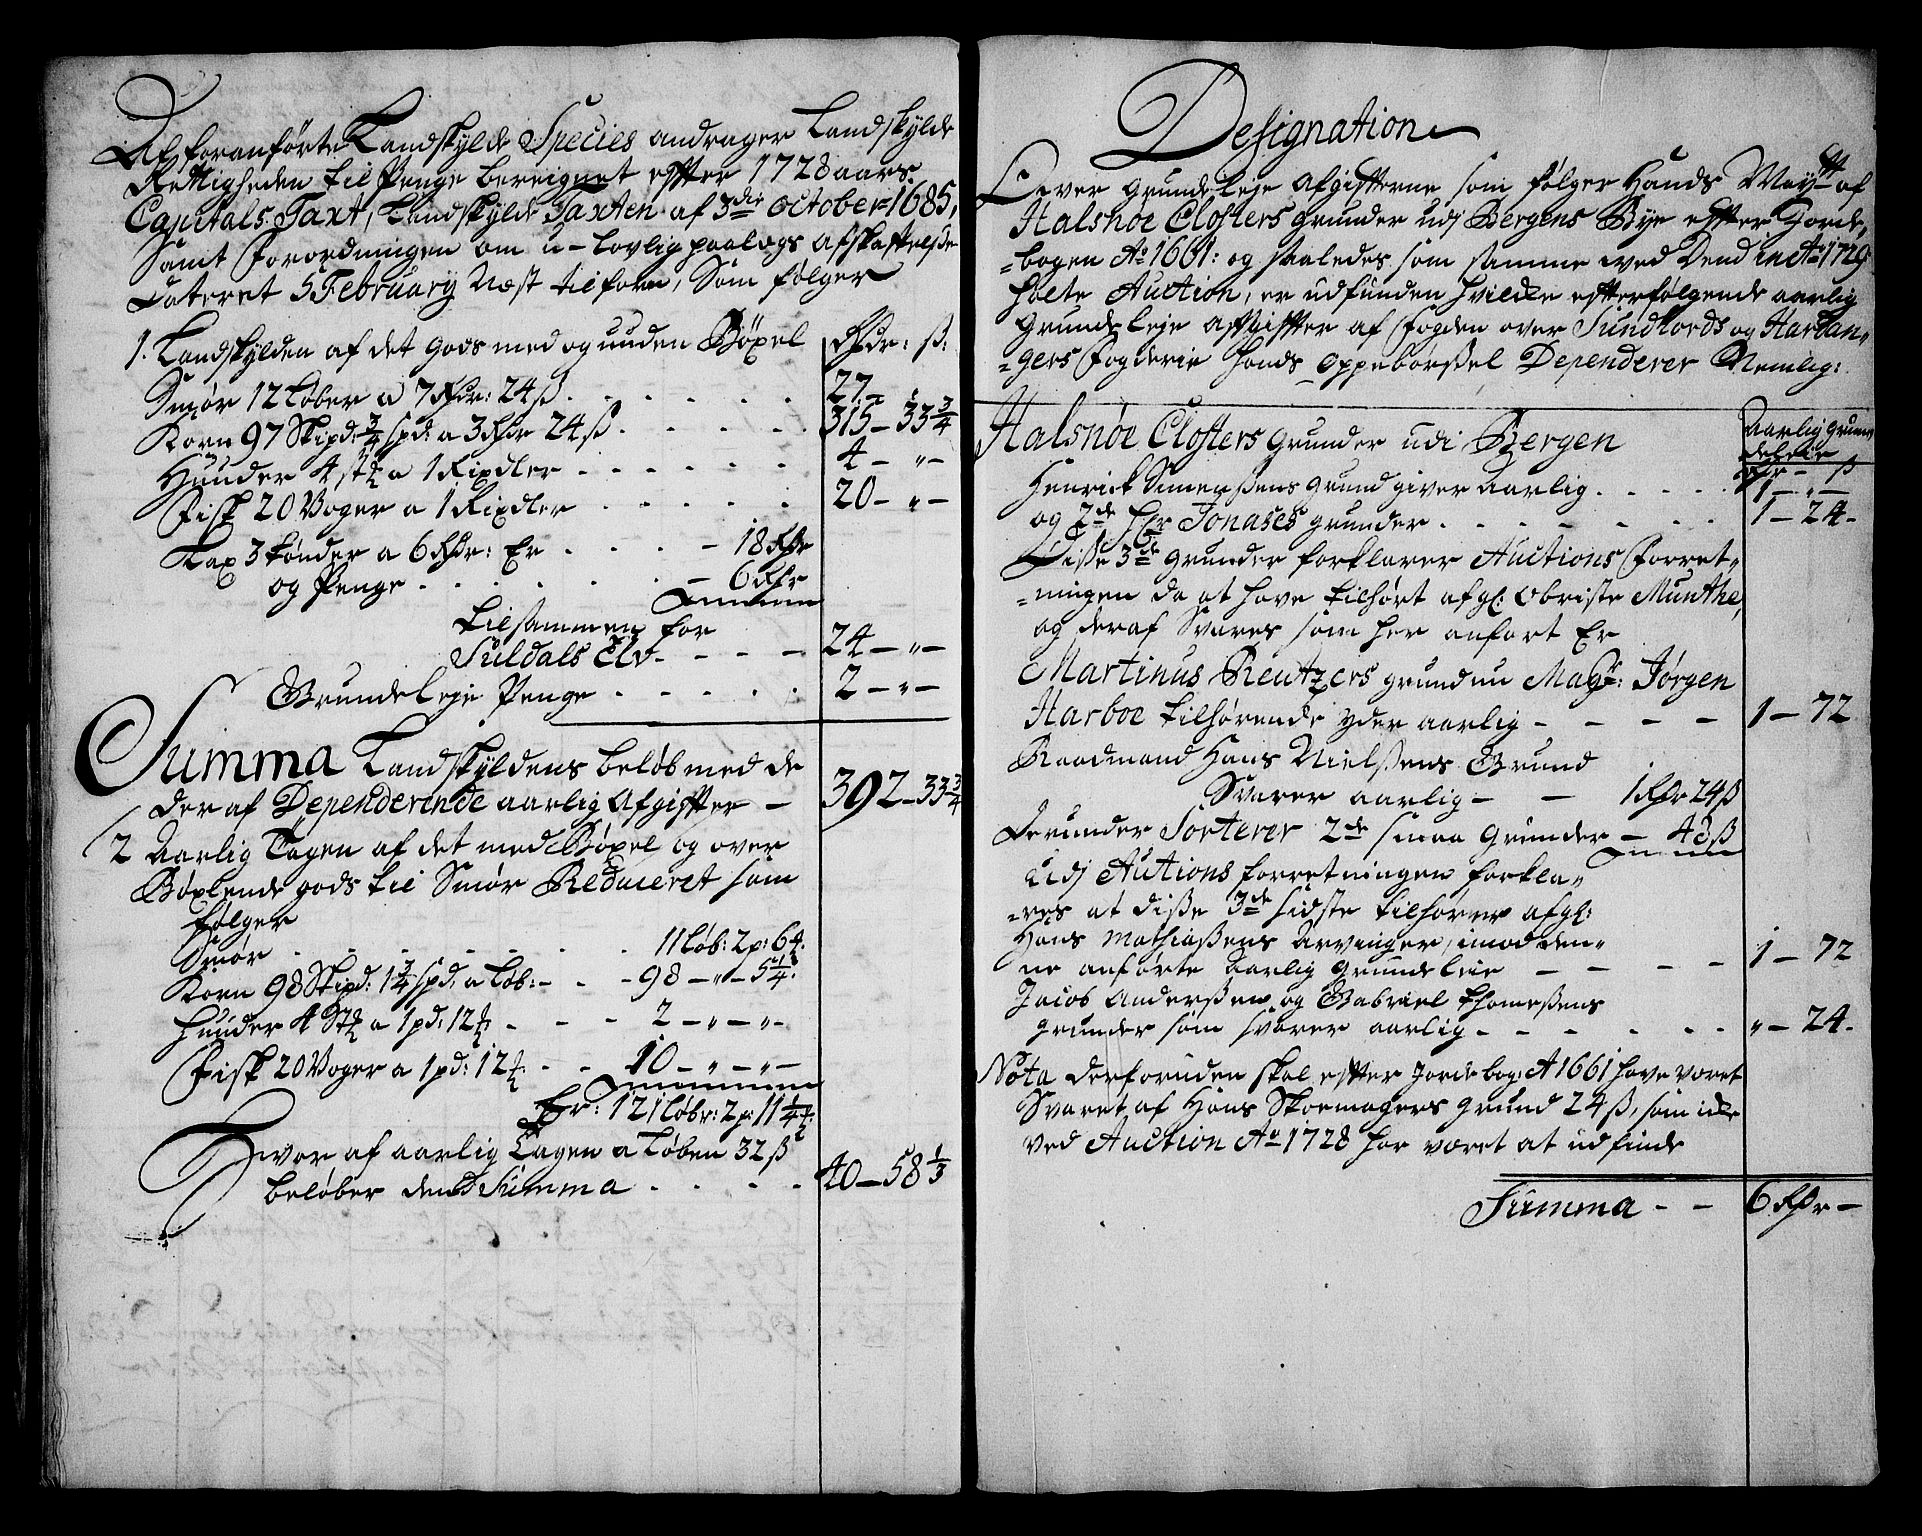 Af foranførte Landskylde Species andrager Landskylde
Rettigheden til Penge bereignet effter 1728 aars
Capitals Taxt, Landskylde Taxten af 3die October 1685,
Samt Forordningen om u-lovlig paalegs afskaffelse
Dateret 5 February næst tilforn, Som følger
1. Landskylden af det gods med og uuden Böxel Rdr: ß:
Smør 12 Løber a 7 Rdr: 24 ß . . . . . . 27 -
Korn 97 Skipd: 3/4 spd: a 3 Rdr 24 ß . . . . . 315 - 33 3/4
Huuder 4 st 1/2 a 1 Rixdler . . . . . . 4 - " -
Fisk 20 Voger a 1 Rixdler . . . . . 20 - " -
Lax 3 tønder a 6 Rdr: Er . . . - 18 Rdr
og Penge . . . . . . - 6 Rdr
tilsammen for
Suldals Elv - - - - 24 - " -
Grundeleje Penge . . . . . 2 - " -
Summa Landskyldens beløb med de
der af Dependerende aarlig Afgiffter - 392 - 33 3/4
2 Aarlig Tagen af det med Böxel og over
Bøxlende gods til Smør Reduceret som
følger
Smør . . . . . . . 11 Løb: 2 p: 6 1/4:
Korn 98 Skipd: 1 3/4 spd: a Løb: - - - 98 - " - 5 1/4:
Huuder 4 St 1/2 a 1 pd: 12 1/2 . - - - 2 - " - " -
Fisk 20 Voger a 1 pd: 12 1/2 - - - 10 - " - " -
Er: 121 Løbr: 2 p: 11 1/4
Hvor af aarlig Tagen a Løben 32 ß
beløber dend Summa . . . . 40 - 58 1/3
Designation
Over grundeleje Afgiffterne som følger Hands Maytt af
Halsnøe Closters grunder udj Bergens Bye effter Jorde,,
=bogen Ao 1661: og saaledes som samme ved Dend in Ao 1729
holte Auction, er udfunden hvilcke effterfølgende aarlig
grundeleje affgiffter af Fogden over Sundhords og Hardan,,
=gers Fogderie hands oppebørßel Dependerer Nemlig:
Halsnøe Closters grunder udi Bergen Aarlig grun
deleie
Rdr - ß
Henrick Simenßens grund giver Aarlig . . . . . 1 - " -
og 2de Hr Jonases grunder . . . . . . . . 1 - 24 -
Diße 3de grunder forklarer Auctions Forret,,
=ningen da at have tilhørt afgl: Obriste Munthe,
og deraf Svares som her anført Er
Martinus Reutzers grund nu Magr: Jørgen
Harboe tilhørende yder aarlig - - - - 1 - 72
Raadmand Hans Nielßens Grund
Svarer aarlig - - 1 Rdr 24 ß
Derunder Sorterer 2de smaa grunder - 48 ß
Udj Auctions forretningen forkla,,
=res at diße 3de sidste tilhører afgl:
Hans Mathiaßens Arvinger, imod den,,
ne anførte Aarlig grundeleie - - - - 1 - 72
Jacob Anderßen og Gabriel Thomeßens
grunder som svarer aarlig - - - - - - " - 24 -
Nota derforuden skal effter Jordebog: A 1661 have været
Svaret af Hans Skoemagers grund 24 ß, som icke
ved Auction Ao 1728 har været at udfinde
Summa - - 6 Rdr -